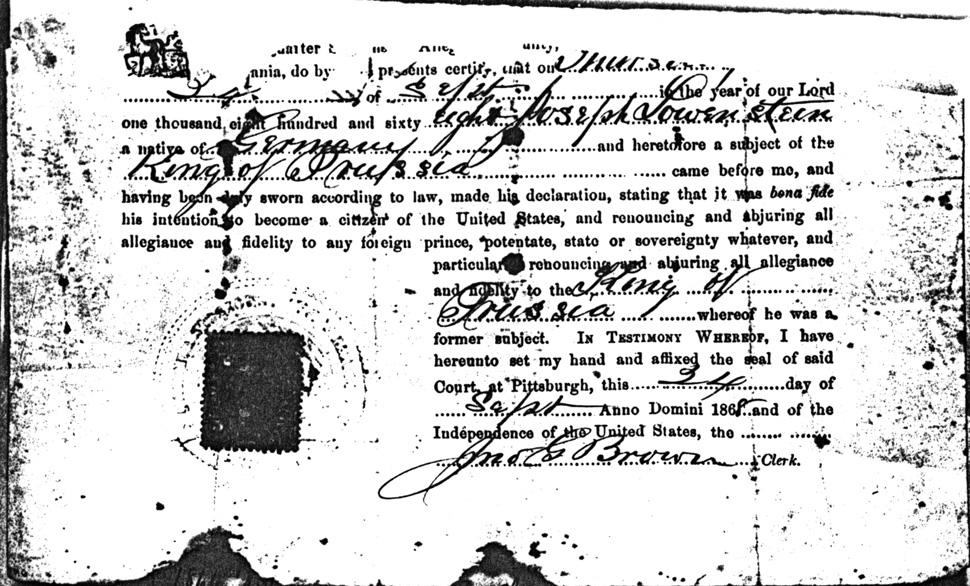 uarter
ania, do by presents certify, that on Thursday
24 of Sept. in the year of our Lord
one thousand eight hundred and sixty eight Joseph Lowenstein
a native of Germany and heretofore a subject of the
King of Prussia came before me, and
having been duly sworn according to law, made his declaration, stating that it was bona fide
his intention to become a citizen of the United States, and renouncing and abjuring all
allegiance and fidelity to any foreign prince, potentate, state or sovereignty whatever, and
particularly renouncing and abjuring all allegiance
and fidelity to the King of
Prussia whereof he was a
former subject. IN TESTIMONY WHEREOF, I have
hereunto set my hand and affixed the seal of said
Court, at Pittsburgh, this 24 day of
Sept Anno Domini 1868 and of the
Independence of the United States, the
Jno G Brown Clerk.